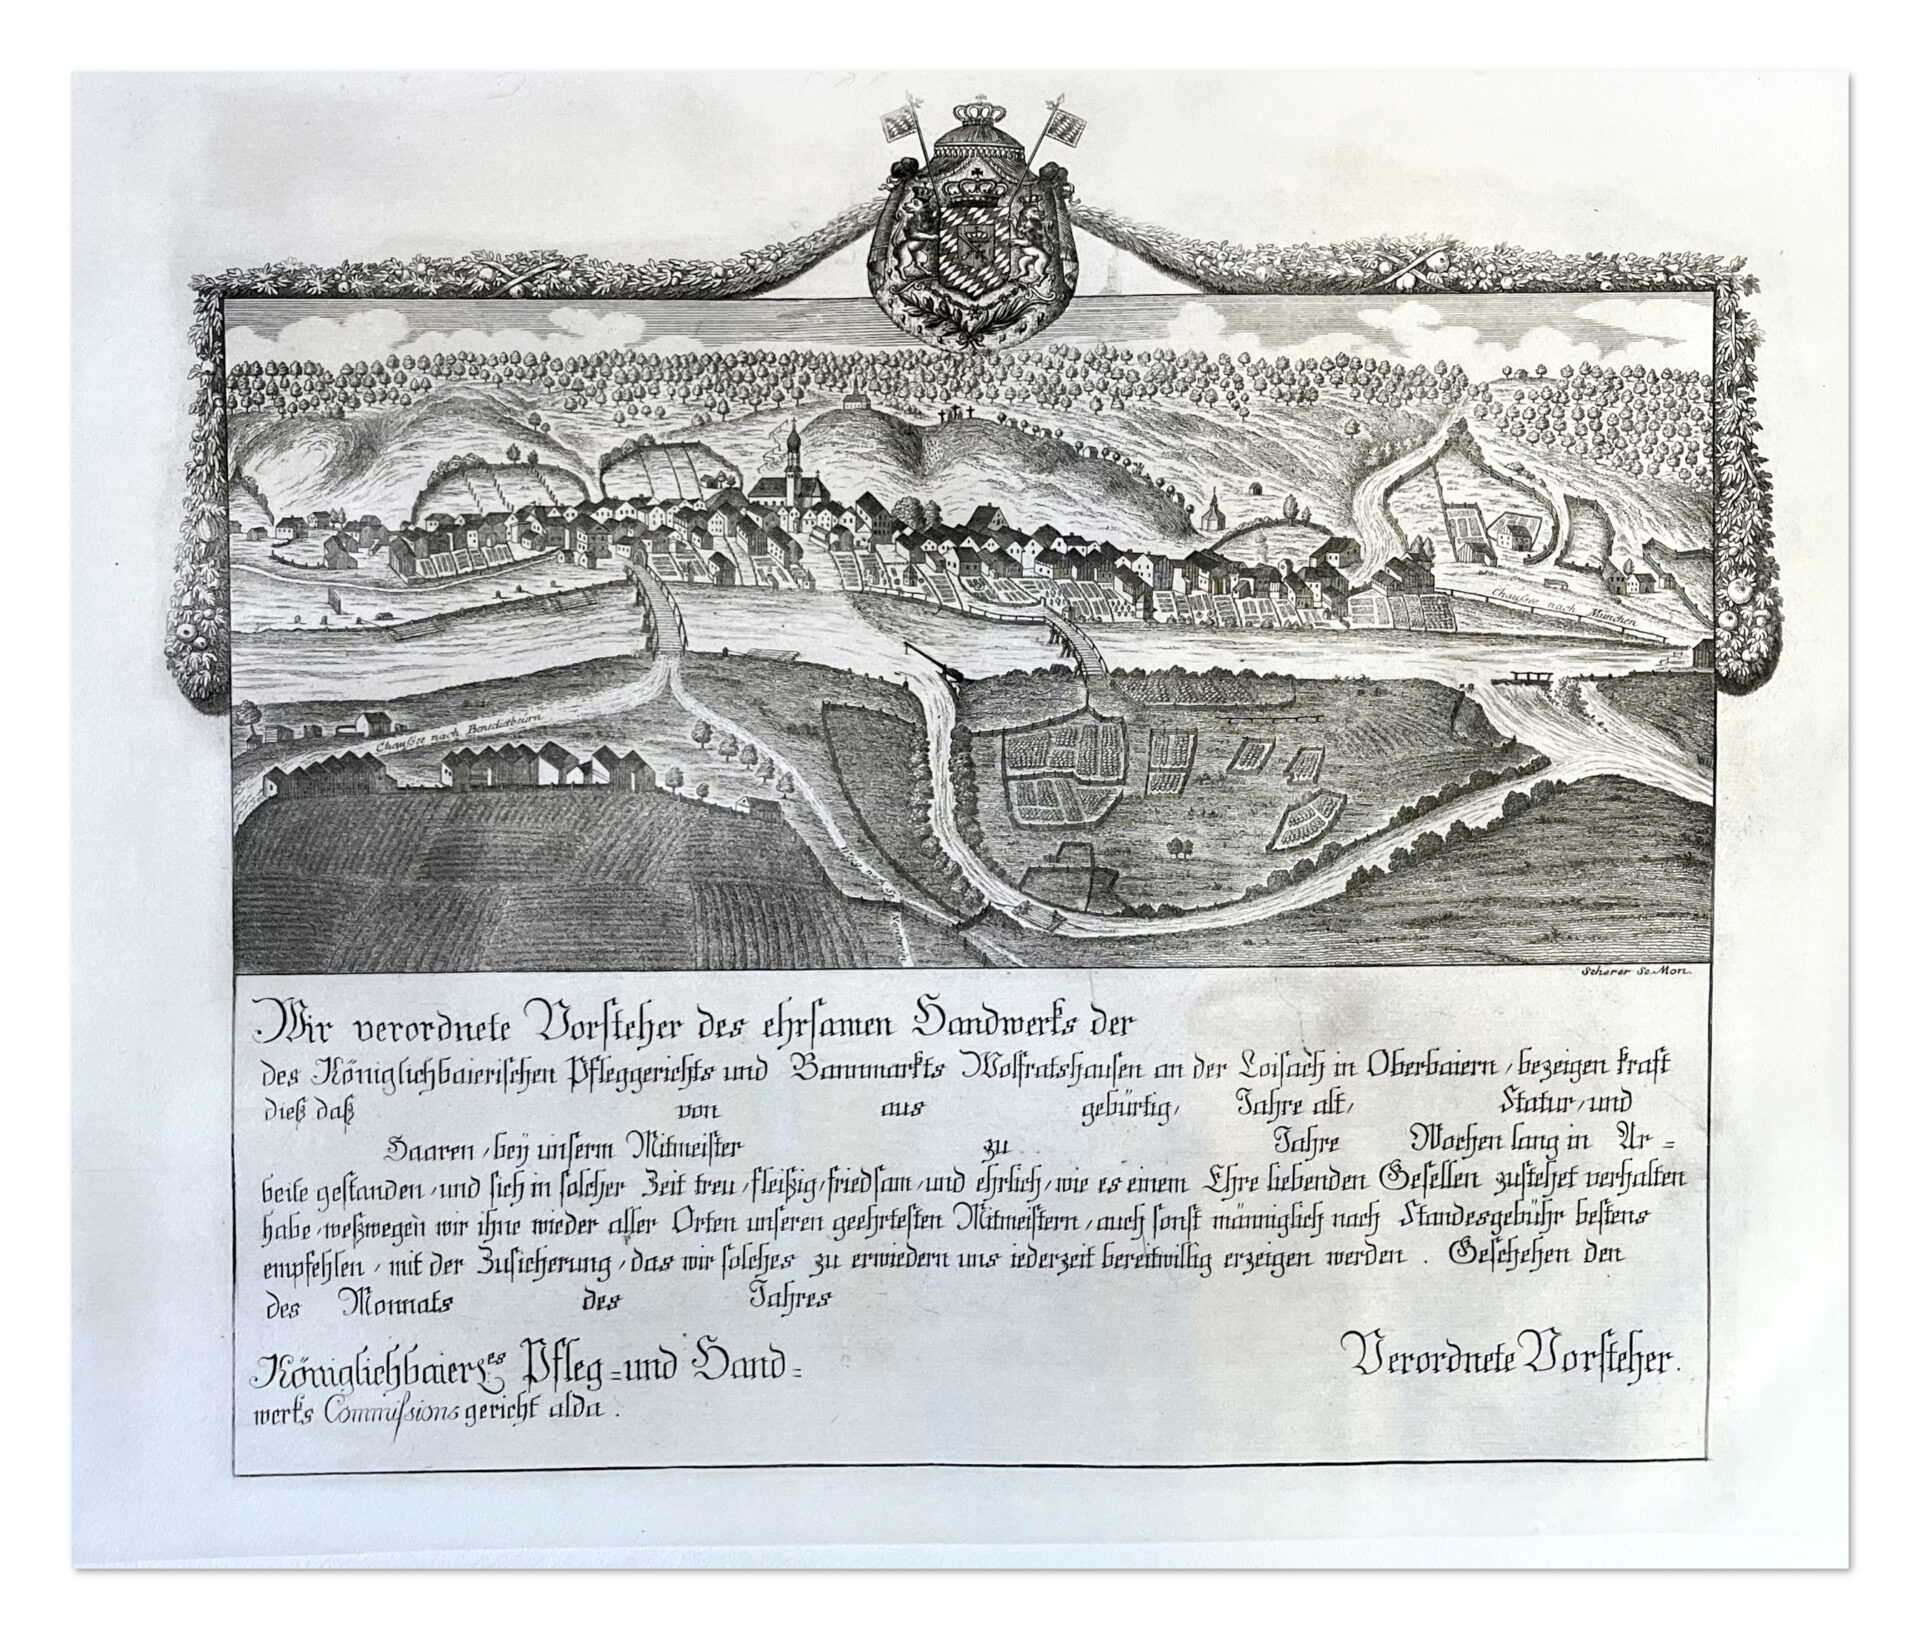 Chaußee nach München
Chaußee nach Benedictbeürn
nach
Scherer Sc. Mon.
Wir verordnete Vorsteher des ehrsamen Handwerks der
des Königlichbaierischen Pfleggerichts und Bannmarkts Wolfratshausen an der Loisach in Oberbaiern, bezeigen kraft
dieß daß von aus gebürtig, Jahre alt, Statur, und
Haaren, beÿ unserm Mitmeister zu Jahre Wochen lang in Ar=
beite gestanden, und sich in solcher Zeit treu, fleißig, friedsam, und ehrlich, wie es einem Ehre liebenden Gesellen zustehet verhalten
habe, weßwegen wir ihne wieder aller Orten unseren geehrtesten Mitmeistern, auch sonst männiglich nach Standesgebühr bestens
empfehlen, mit der Zusicherung, das wir solches zu erwiedern uns iederzeit bereitwillig erzeigen werden. Geschehen den
des Monnats des Jahres
Königlichbaierl.es Pfleg= und Hand=
werks Commißions gericht alda.
Verordnete Vorsteher.